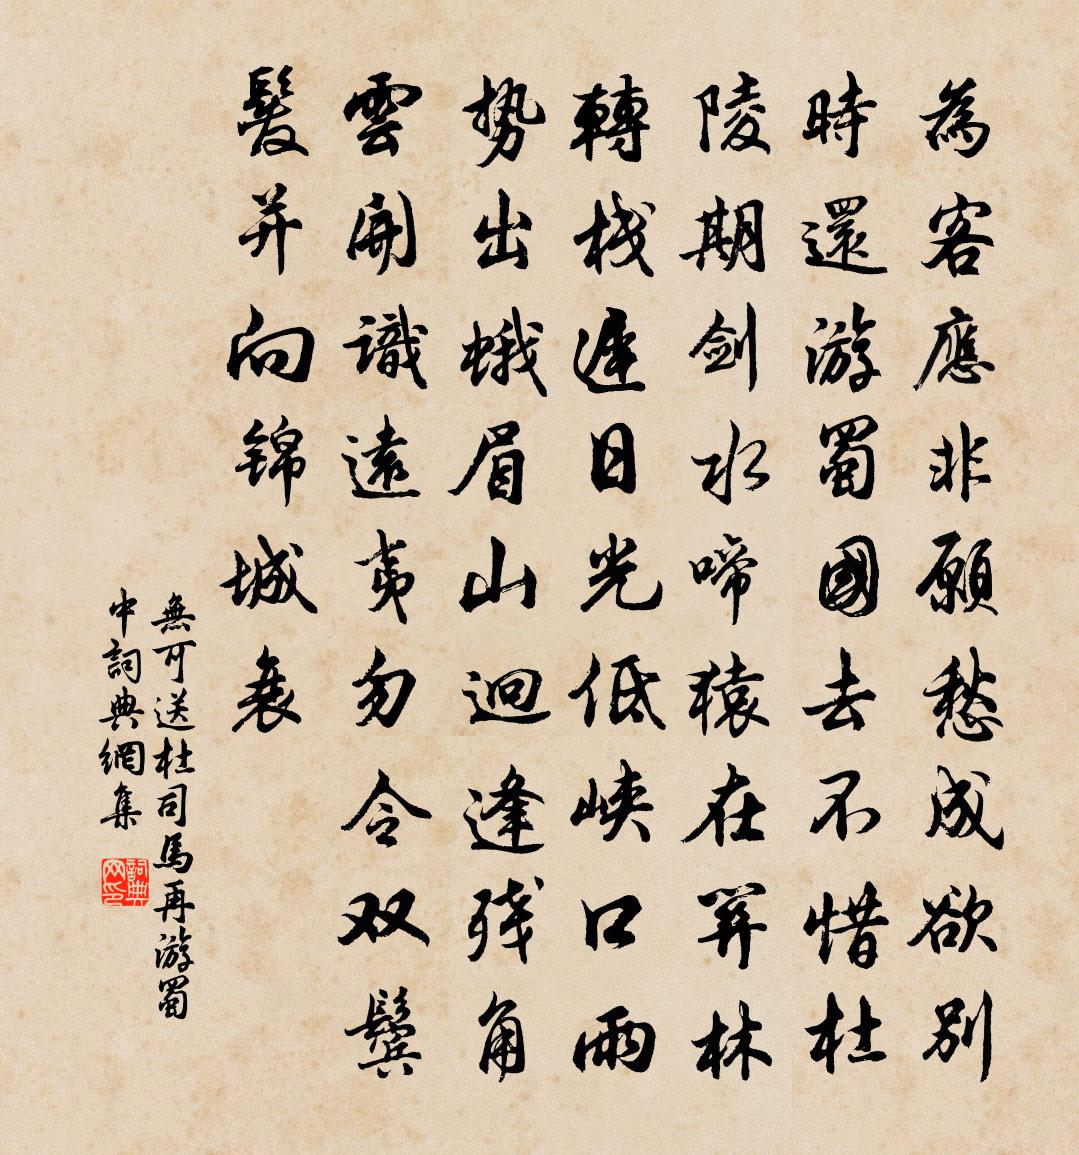 為客應非願愁成欲別
時還游蜀國去不惜杜
陵期劍水啼猿在關林
轉棧遲日光低峽口雨
势出蛾眉山迥逢残角
雲開識遠夷勿令双鬢
髮并向錦城衰
無可送杜司馬再游蜀
中詞典網集
詞典
网印